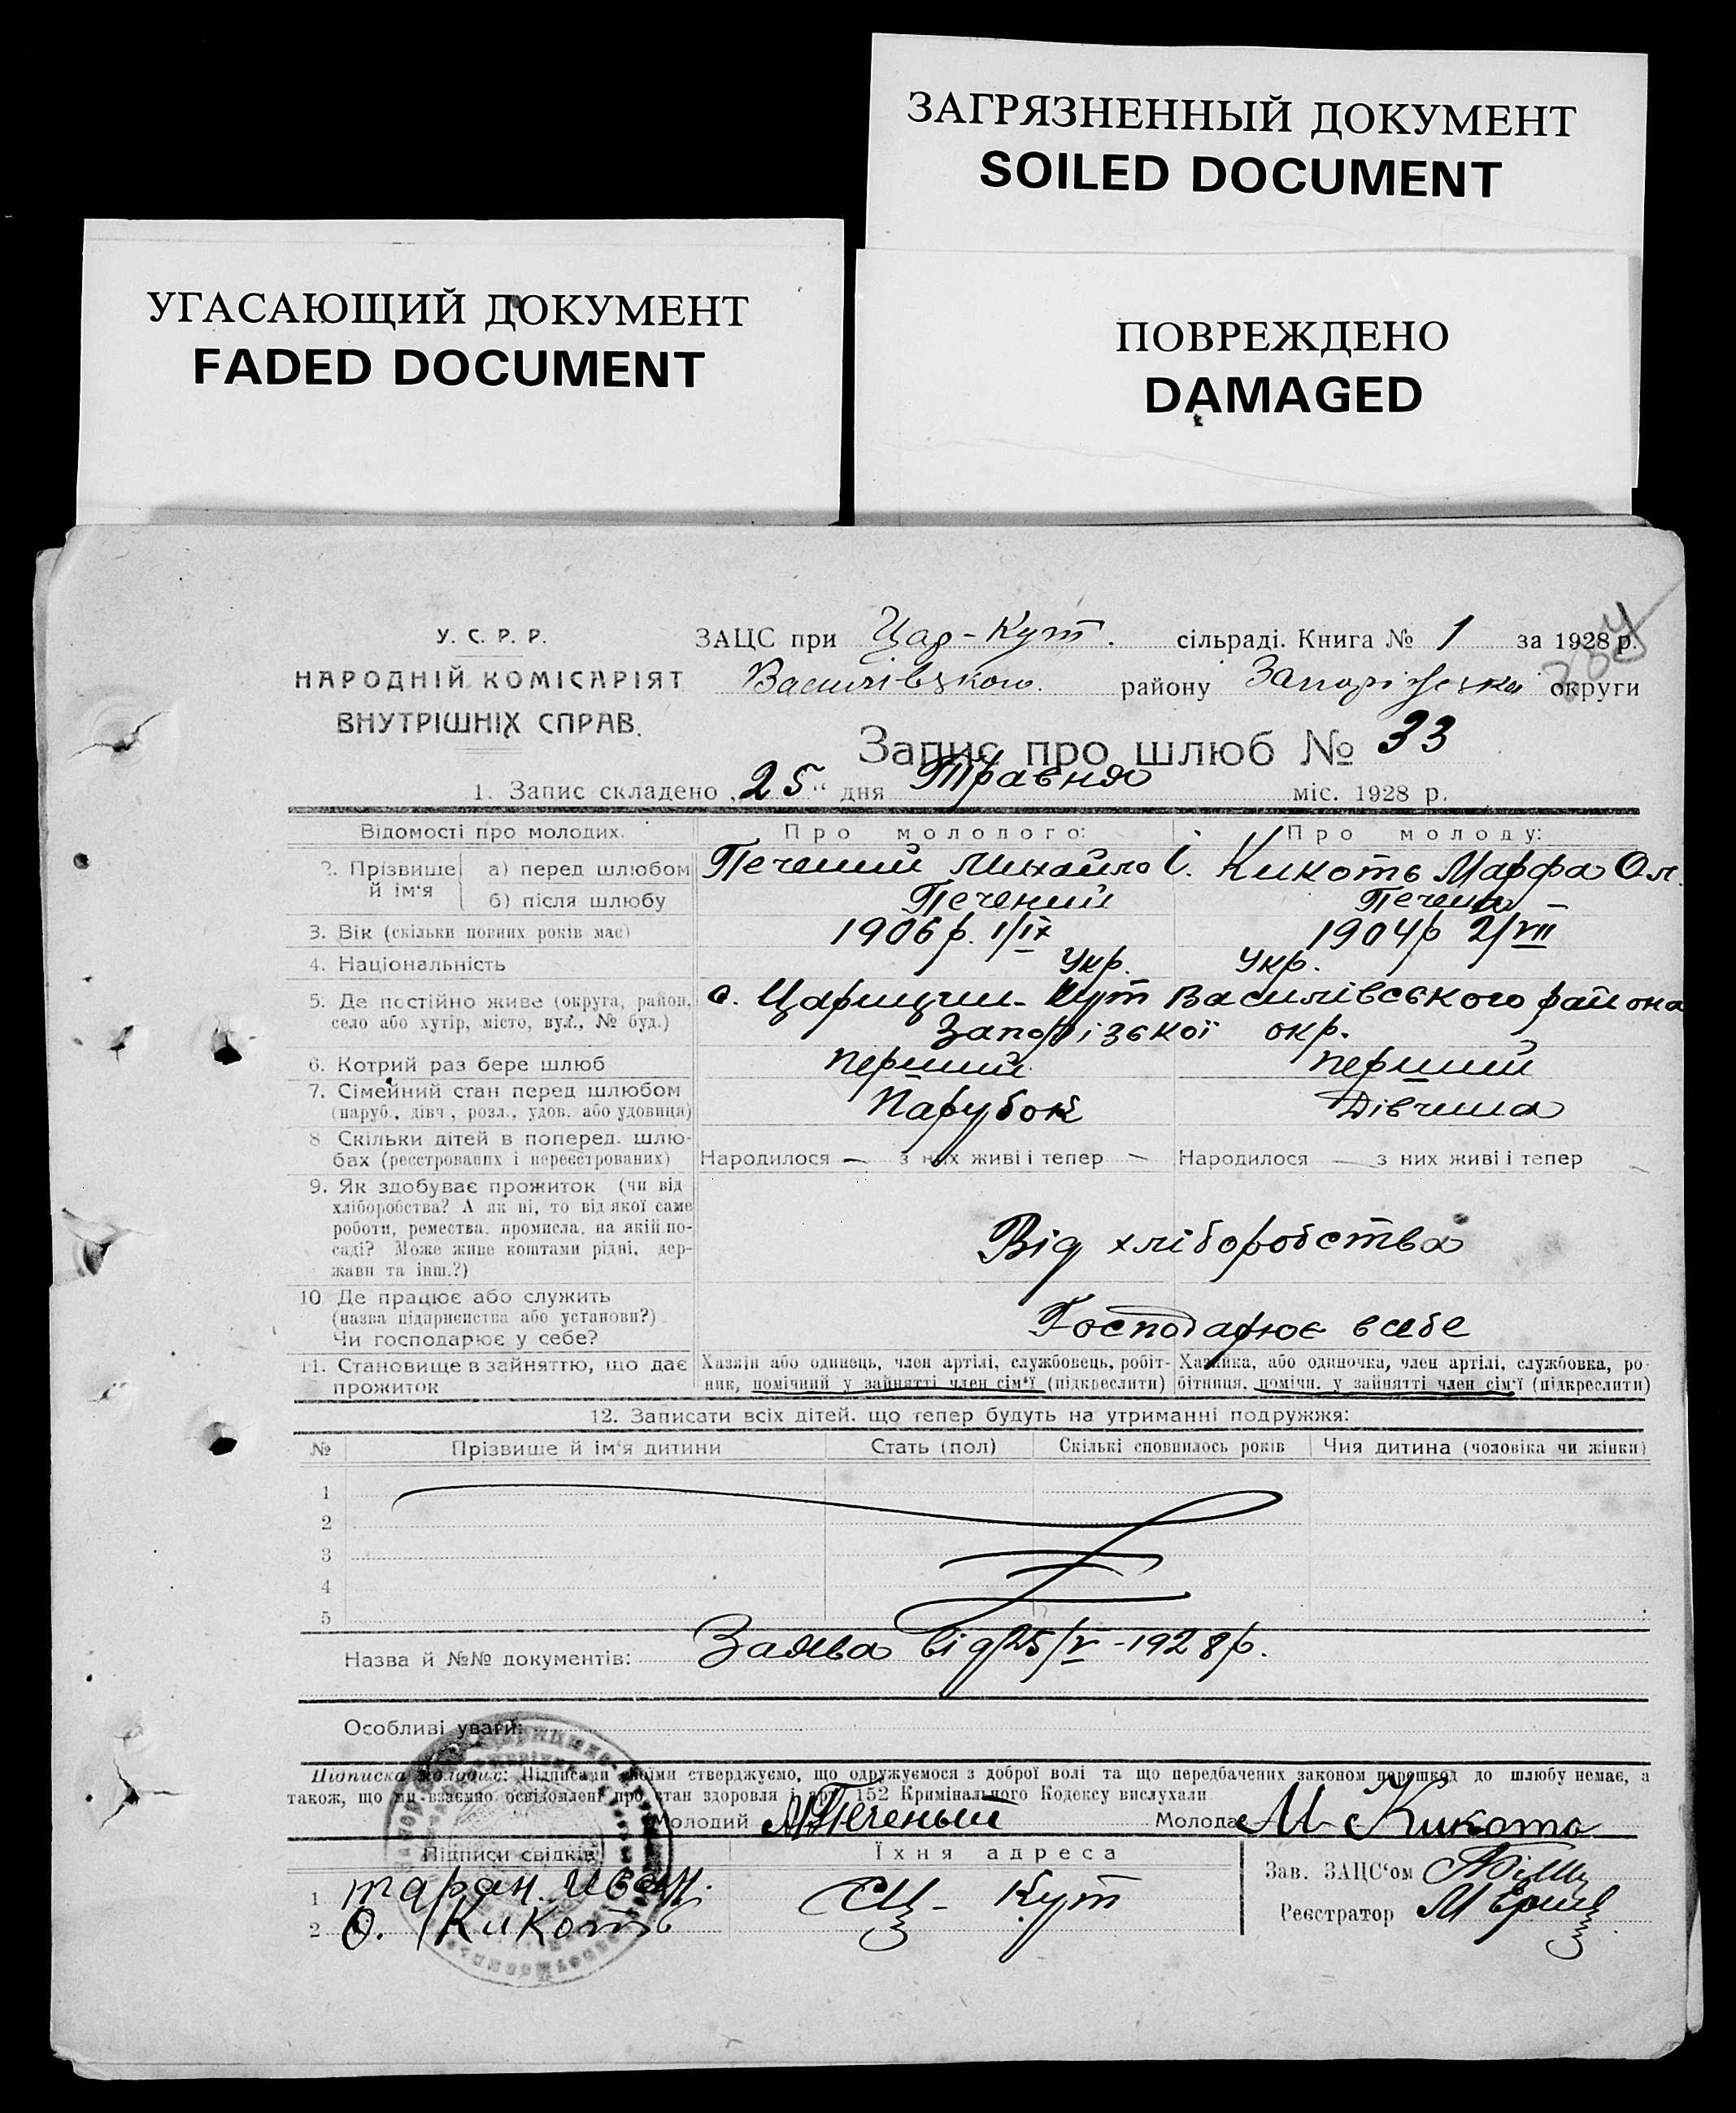 ЗАГРЯЗНЕННЫЙ ДОКУМЕНТ
SOILED DOCUMENT
УГАСАЮЩИЙ ДОКУМЕНТ
FADED DOCUMENT
ПОВРЕЖДЕНО
DAMAGED
У. С. Р. Р.
НАРОДНІЙ КОМІСАРІЯТ
ВНУТРІШНІХ СПРАВ.
ЗАЦС при Цар-Кут. сільраді. Книга № 1 за 1928 р.
Василівського району Запорізька округи
Запис про шлюб № 33
1. Запис складено „25" дня Травня міс. 1928 р.
Відомості про молодих. Про молодого: Про молоду:
2. Прізвище й ім'я а) перед шлюбом Печений Михайло І. Кикоть Марфа Ол.
б) після шлюбу Печений Печена
3. Вік (скільки повних років має) 1906 р. 1/IX 1904 р 2/VII
4. Національність Укр. Укр.
5. Де постійно живе (округа, район, село або хутір, місто, вул., № буд.) с. Царицин-Кут Василівського района
Запорізської окр.
6. Котрий раз бере шлюб перший перший
7. Сімейний стан перед шлюбом Парубок Дівчина
(паруб., дівч., розл., удов. або удовиця)
8 Скільки дітей в поперед. шлю-
бах (реєстрованих і нереєстрованих) Народилося — з них живі і тепер — Народилося — з них живі і тепер —
9. Як здобуває прожиток (чи від
хліборобства? А як ні, то від якої саме
роботи, ремества, промисла, на якій по-
саді? Може живе коштами рідні, дер-
жави та інш.?)
Від хліборобства
10 Де працює або служить
(назва підприємства або установи?)
Чи господарює у себе?
Господарює в себе
11. Становище в зайняттю, що дає
прожиток
Хазяїн або одинець, член артілі, службовець, робіт-
ник, помічний у зайнятті член сім'ї (підкреслити)
Хазяйка, або одиночка, член артілі, службовка, ро-
бітниця, помічн. у зайнятті член сім'ї (підкреслити)
12. Записати всіх дітей, що тепер будуть на утриманні подружжя:
№ Прізвище й ім'я дитини Стать (пол) Скількі сповнилось років Чия дитина (чоловіка чи жінки)
1
2
3
4
5
Назва й №№ документів: Заява від 25/V-1928 р.
Особливі уваги:
Підписка молодих: Підписами своїми стверджуємо, що одружуємося з доброї волі та що передбачених законом перешкод до шлюбу немає, а
також, що ми взаємно освідомлені про стан здоровля і арт. 152 Кримінального Кодексу вислухали
Молодий МПеченый Молода М Кикоть
Підписи свідків Їхня адреса
1 Таран. Иван.
2 О. Кикоть
с Ц-Кут
Зав. ЗАЦС'ом
Реєстратор